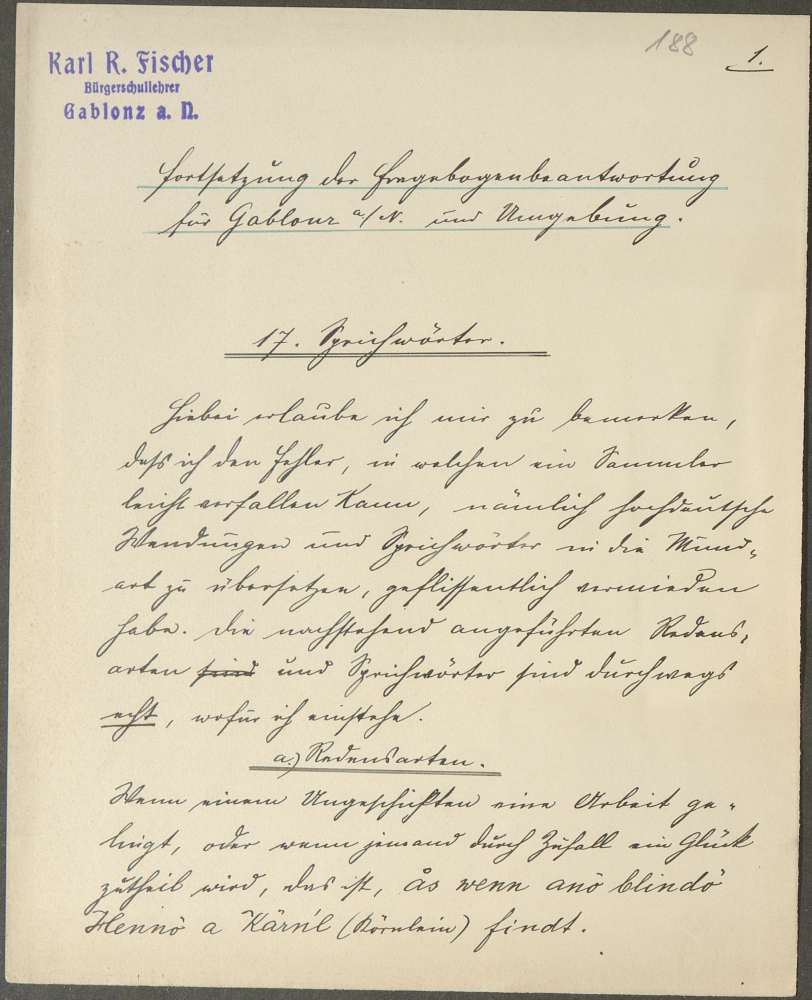 188
1.
Karl R. Fischer
Bürgerschullehrer
Gablonz a. N.
Fortsetzung der Fragebogenbeantwortung
für Gablonz a/N. und Umgebung.
17. Sprichwörter.
Hiebei erlaube ich mir zu bemerken,
dass ich den Fehler, in welchen ein Sammler
leicht verfallen kann, nämlich hochdeutsche
Wendungen und Sprichwörter in die Mund-
art zu übersetzen, geflissentlich vermieden
habe. Die nachstehend angeführten Redens-
arten sind und Sprichwörter sind durchwegs
echt, wofür ich einstehe.
a.) Redensarten.
Wenn einem Ungeschickten eine Arbeit ge-
lingt, oder wenn jemand durch Zufall ein Glück
zutheil wird, das ist, ås wenn anö blindö
Hennö a Kärn'l (Körnlein) findt.